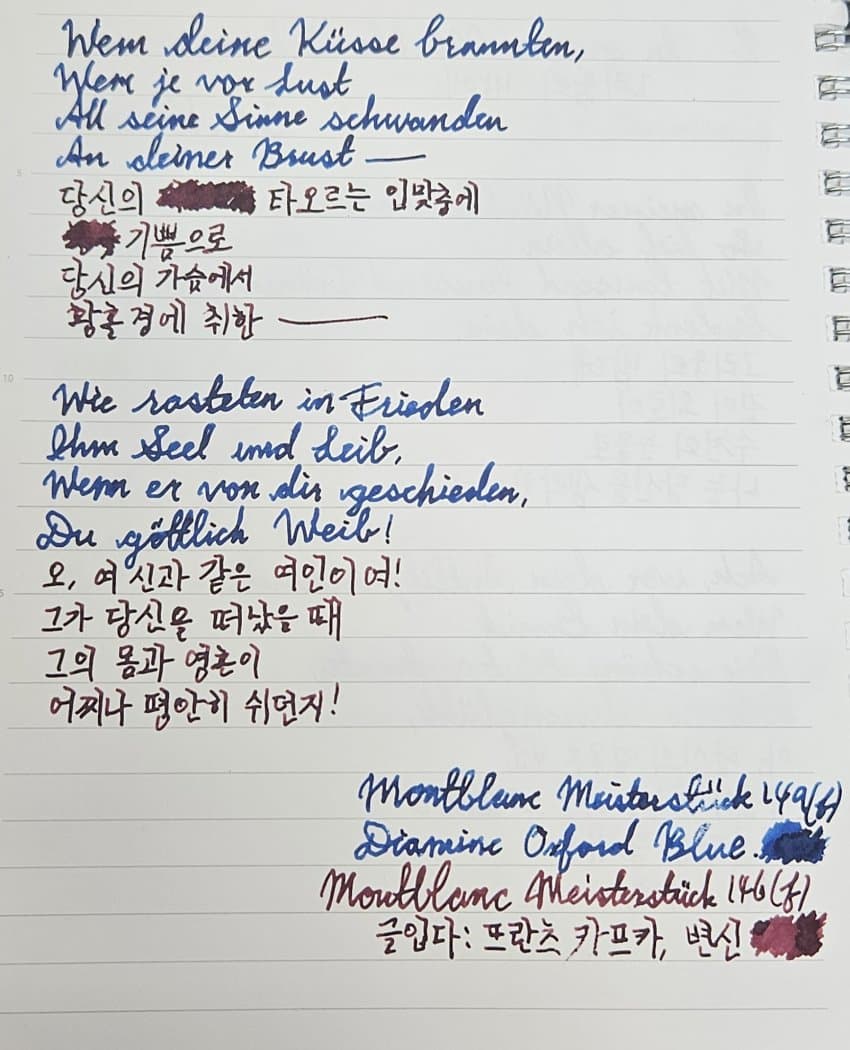 Wem deine Küsse brannten,
Wem je vor Lust
All seine Sinne schwanden
An deiner Brust —
당신의 타오르는 입맞춤에
기쁨으로
당신의 가슴에서
황홀경에 취한 —
Wie rasteten in Frieden
Ihm Seel und Leib,
Wenn er von dir geschieden,
Du göttlich Weib!
오, 여신과 같은 여인이여!
그가 당신을 떠났을 때
그의 몸과 영혼이
어찌나 평안히 쉬던지!
Montblanc Meisterstück 149(f)
Diamine Oxford Blue.
Montblanc Meisterstück 146(f)
글입다: 프란츠 카프카, 변신
5
10